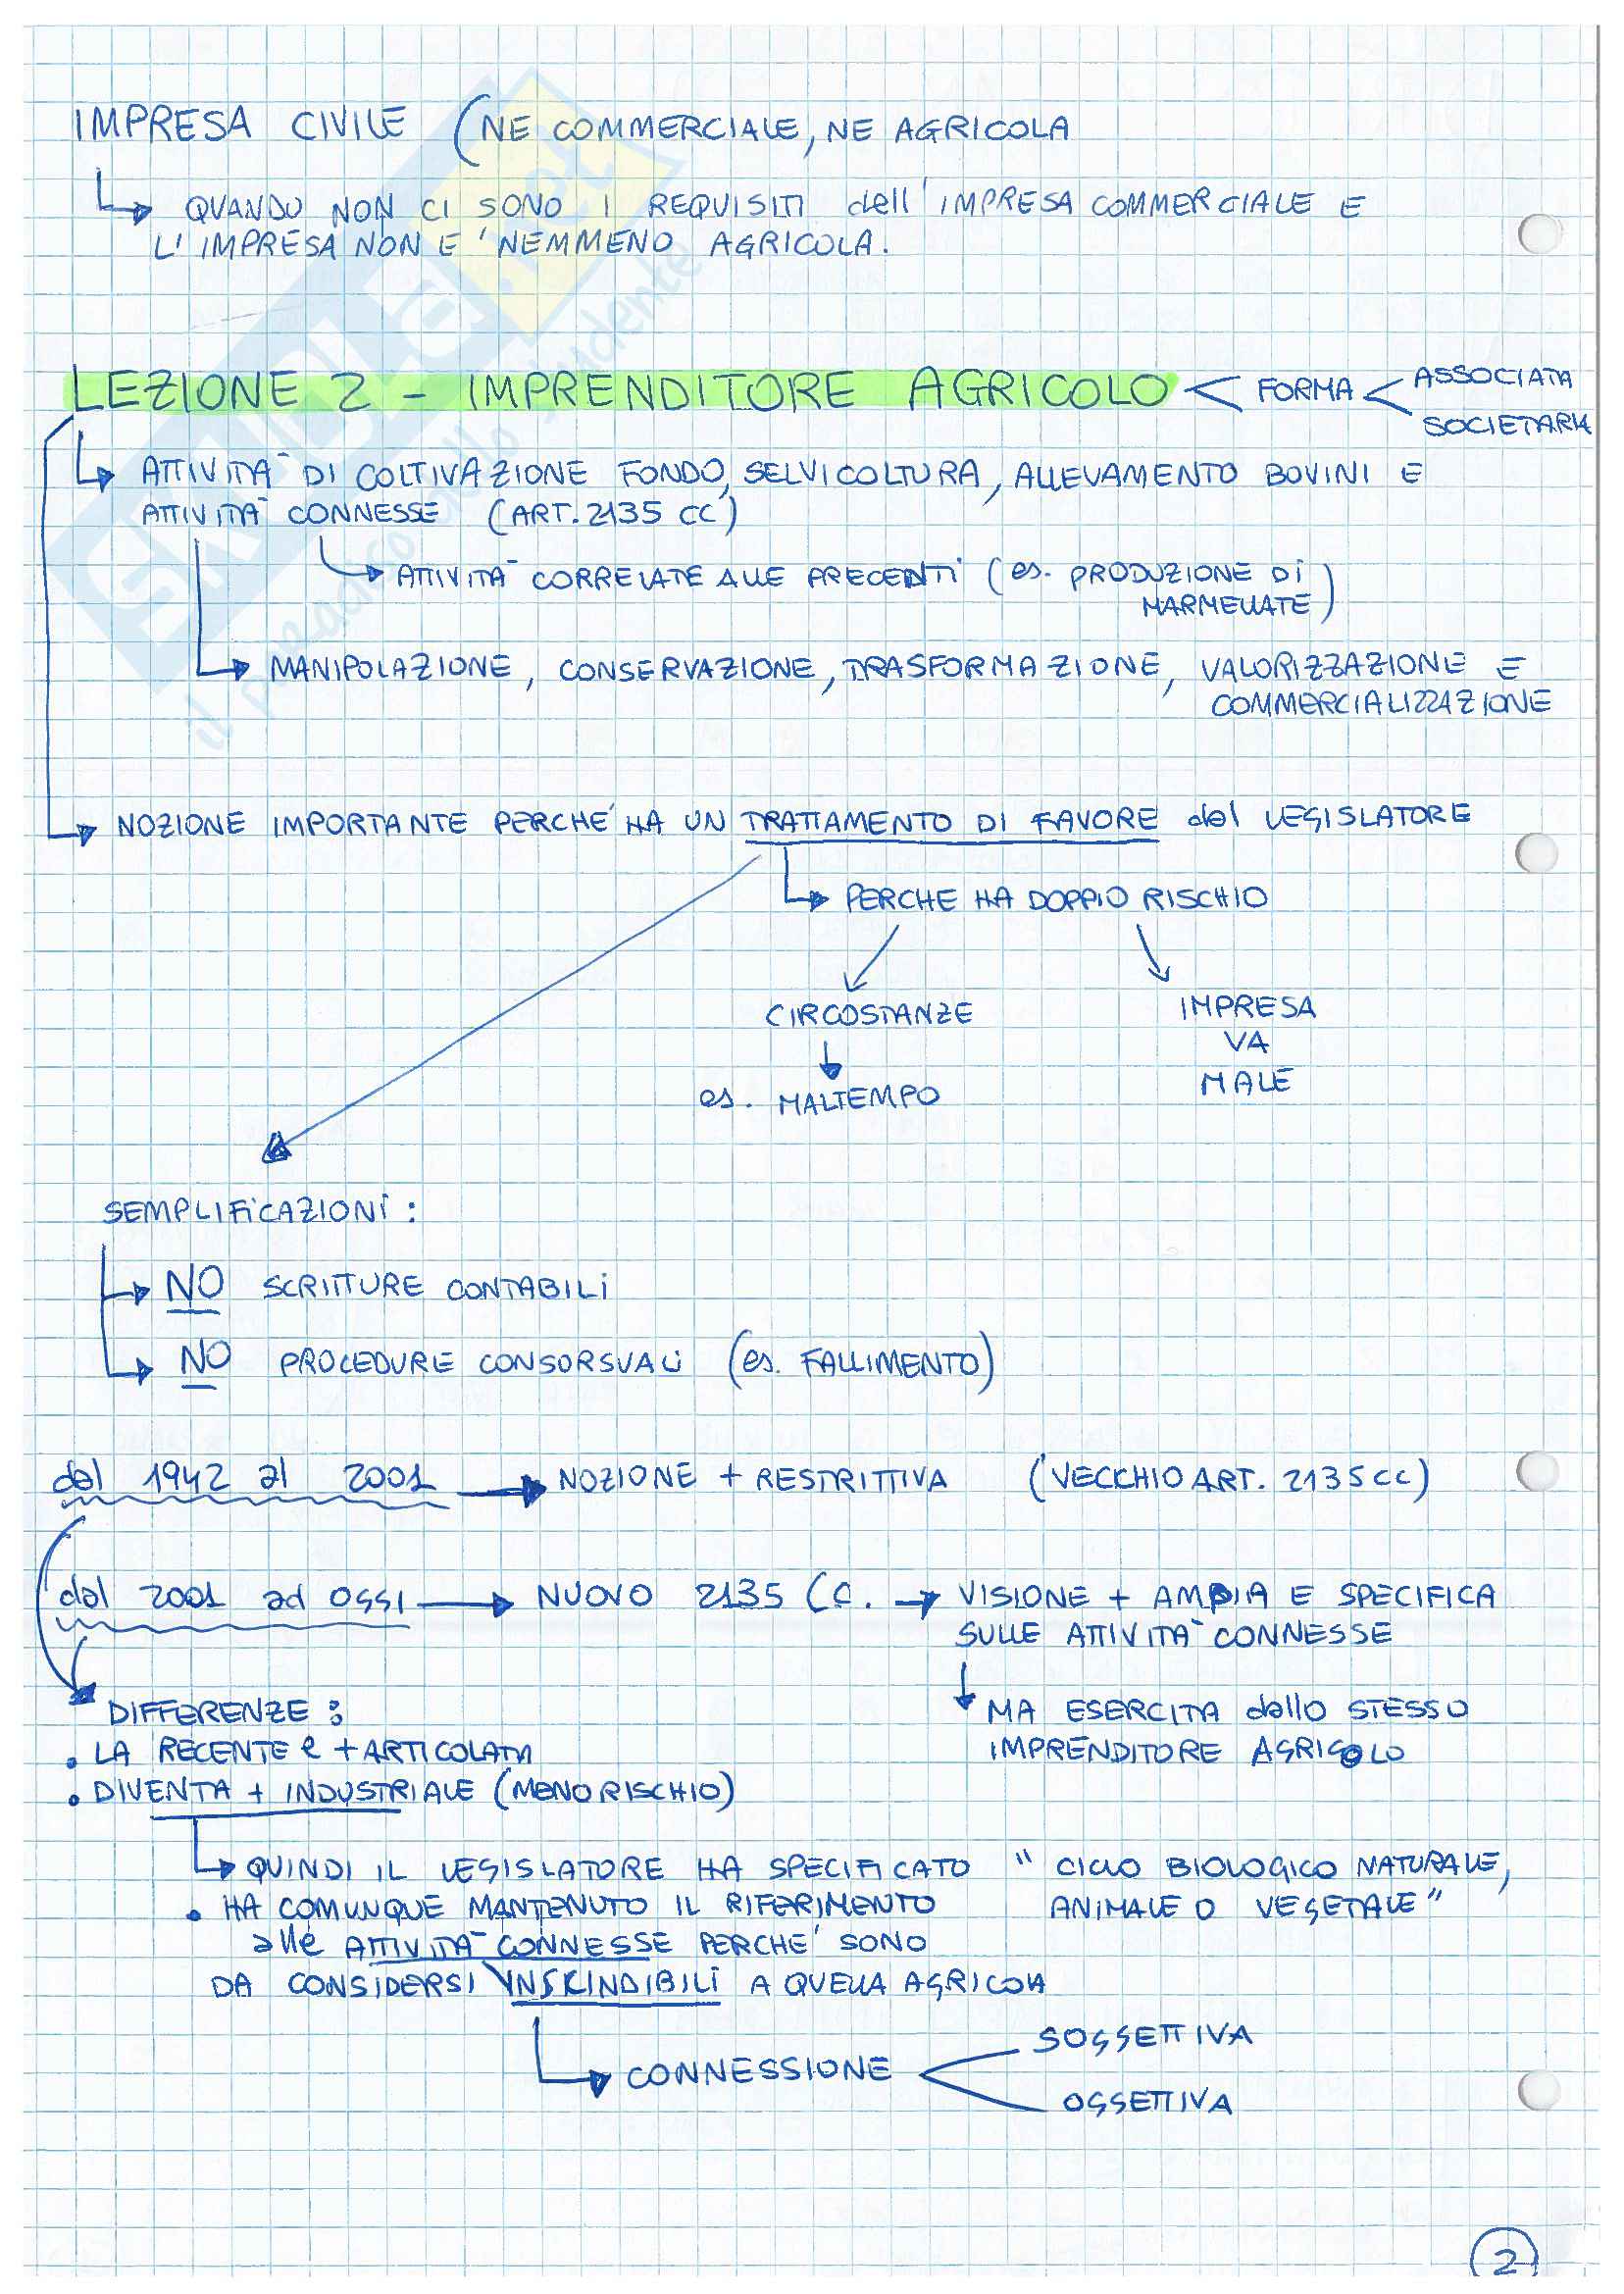 IMPRESA CIVILE (NE COMMERCIALE, NE AGRICOLA
QUANDO NON CI SONO I REQUISITI dell'IMPRESA COMMERCIALE E
L'IMPRESA NON E' NEMMENO AGRICOLA.
LEZIONE 2 - IMPRENDITORE AGRICOLO < FORMA < ASSOCIATA
SOCIETARIA
ATTIVITA' DI COLTIVAZIONE FONDO, SELVICOLTURA, ALLEVAMENTO BOVINI E
ATTIVITA' CONNESSE (ART. 2135 CC)
ATTIVITA' CORRELATE ALLE PRECEDENTI (es. PRODUZIONE DI
MARMELLATE)
MANIPOLAZIONE, CONSERVAZIONE, TRASFORMAZIONE, VALORIZZAZIONE E
COMMERCIALIZZAZIONE
NOZIONE IMPORTANTE PERCHE' HA UN TRATTAMENTO DI FAVORE del LEGISLATORE
PERCHE HA DOPPIO RISCHIO
CIRCOSTANZE
IMPRESA
VA
MALE
es. MALTEMPO
SEMPLIFICAZIONI:
NO SCRITTURE CONTABILI
NO PROCEDURE CONSORSUALI (es. FALLIMENTO)
dal 1942 al 2001 → NOZIONE + RESTRITTIVA (VECCHIO ART. 2135 CC)
dal 2001 ad OGGI → NUOVO 2135 CC. → VISIONE + AMPIA E SPECIFICA
SULLE ATTIVITA' CONNESSE
MA ESERCITA dallo STESSO
IMPRENDITORE AGRICOLO
DIFFERENZE:
• LA RECENTE è + ARTICOLATA
• DIVENTA + INDUSTRIALE (MENO RISCHIO)
QUINDI IL LEGISLATORE HA SPECIFICATO "CICLO BIOLOGICO NATURALE,
ANIMALE O VEGETALE"
• HA COMUNQUE MANTENUTO IL RIFERIMENTO
alle ATTIVITA' CONNESSE PERCHE' SONO
DA CONSIDERSI INSCINDIBILI A QUELLA AGRICOLA
CONNESSIONE < SOGGETTIVA
OGGETTIVA
2
SKUOLA.net
il paradiso dello studente